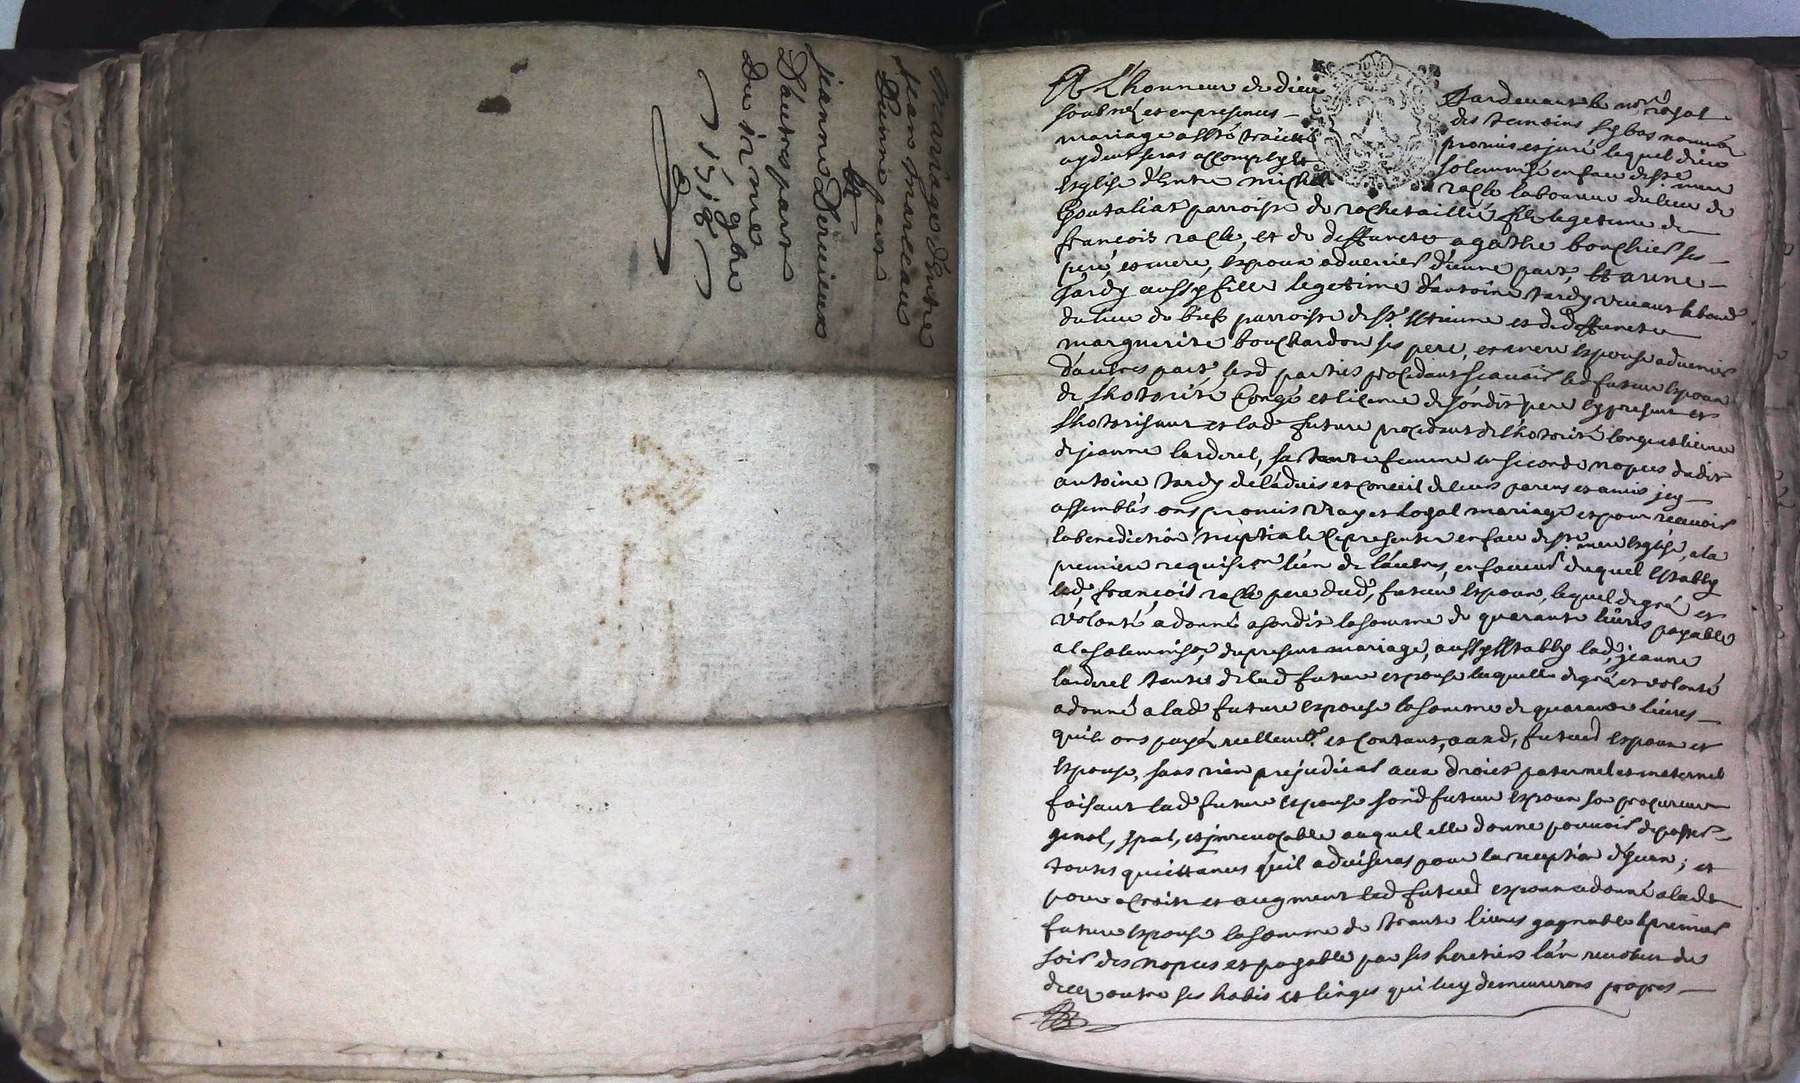 Mariage d'Entre
Jean Marceau
d'unne part
Et
Jeanne Derieieux
D'autre part
Du 12me
1716
A L'honneur de dieu Pardevant le no.re royal
soubné et en presences des temoins bas nommés
mariage a esté traitté promis et juré lequel dieu
aydant sera accomply et solemnisé en face de S.te mere
Esglise d'Entre Michel racle laboureur du lieu de
Goutaliat parroisse de rochetaillié fils legetime de
francois racle, et de deffuncte agathe bouchier ses
pere, et mere, Espoux advenir d'unne part, Et anne
tardy aussy fille legetime d'antoine tardy vivant
du lieu du parroisse de S.t Estienne et de deffuncte
marguerite bouchardon ses pere, et mere Espouse advenir
d'autres part lesd parties procedant scavoir led futur Espoux
de Lhotorité Congé et licence de sondit pere Cy present et
Lhotorisant et lad future procedant de l'hotorité Congé et licence
de jeanne larderel, sa tante femme en seconde nopces dudit
antoine tardy de l'advis et Conceil de leurs parens et amis jcy
assemblés ont promis vray et loyal mariage et pour recevoir
la benediction nuptiale Ce presenter en face de S.te mere Esglise, a la
premiere requisi.on l'un de l'autre, en faveur duquel Estably
led, francois racle pere dud, futur Espoux, lequel de gré et
volonté a donné a sondit la somme de quarante livres payable
a la solemnis.on du present mariage, aussy Estably lad, jeanne
larderel tante de lad future espouse laquelle de gré et volonté
a donné a lad future espouse la somme de quarante livres
quil ont payé reellem.t et Contant, auxd, futurs Espoux et
Espouse, sans rien prejudicier aux droits paternel et meternel
faisant lad future Espouse sond futur Espoux son procureur
genal, spal, et jrrevocable auquel elle donne pouvoir de passer
toutes quittances qu'il advisera pour la reception d'Jceux; et
pour acroits et augment led futur espoux a donné a lade
future espouse la somme de trante livres gagnable le premier
soir des nopces et payable par ses heretiers l'an revolu du
deces outre ses habis et linges qui luy demeureront propres